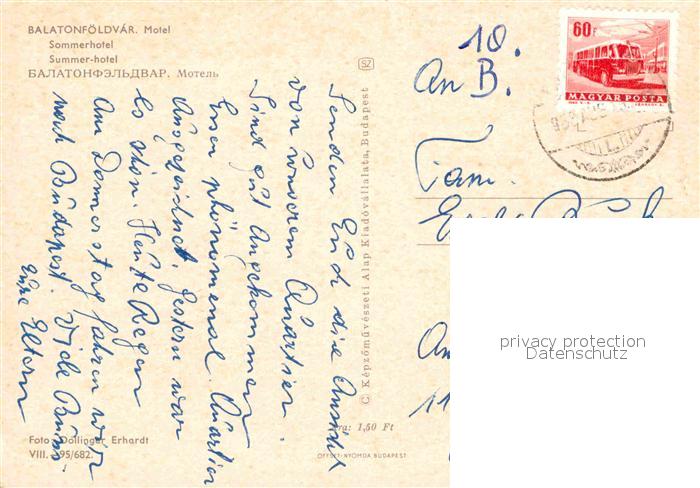 BALATONFÖLDVÁR. Motel
Sommerhotel
Summer-hotel
БАЛАТОНФЭЛЬДВАР. Мотель
Senden Euch die Ansicht
von unserem Quartier.
Sind gut angekommen
Essen phänomenal. Quartier
Ausgezeichnet. Gestern war
es schön. Heute Regen
Am Donnerstag fahren wir
nach Budapest. Viele
Eure Eltern
Foto: Dollinger Erhardt
VIII. 95/682.
SZ
C. Képzőművészeti Alap Kiadóvállalata, Budapest
Ára: 1,50 Ft
OFFSET-NYOMDA BUDAPEST
10.
An B.
Fam.
An
11
60f
MAGYAR POSTA
privacy protection
Datenschutz